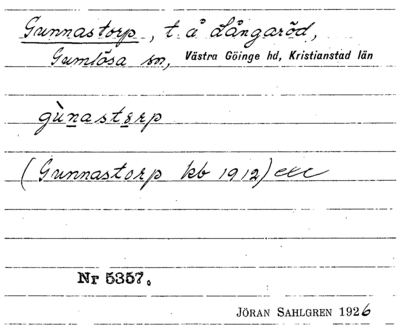 Gunnastorp, t. å Långaröd,
Gumlösa sn, Västra Göinge hd, Kristianstad län
gùnastɛrp
(Gunnastorp kb 1912) etc
Nr 5357.
JÖRAN SAHLGREN 1926